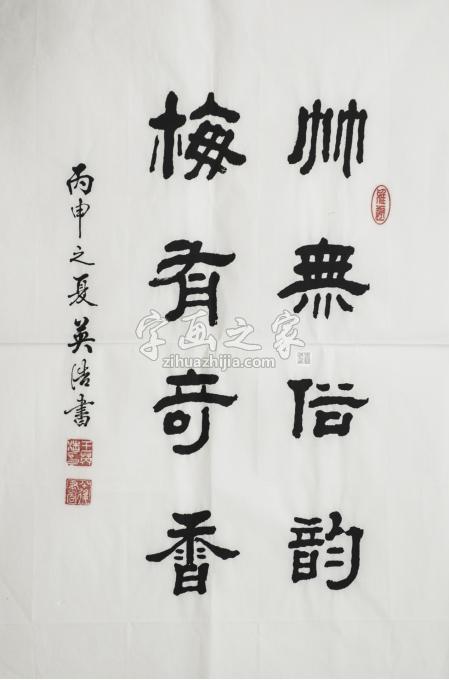 竹無俗韵
梅有奇香
丙申之夏英浩書
字画之家
zihuazhijia.com